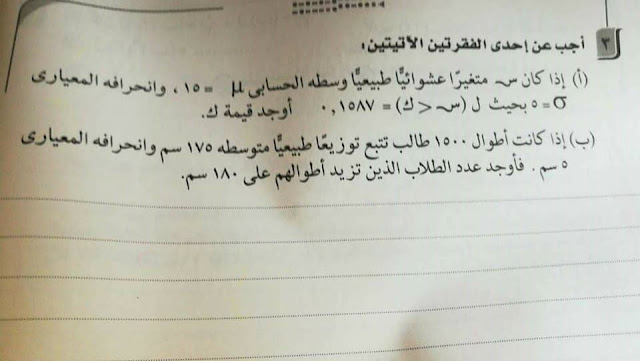 ٣ أجب عن إحدى الفقرتين الآتيتين:
(أ) إذا كان س متغيرًا عشوائيًّا طبيعيًّا وسطه الحسابى μ = ١٥ ، وانحرافه المعيارى
σ = ٥ بحيث ل (س < ك) = ٠,١٥٨٧ أوجد قيمة ك.
(ب) إذا كانت أطوال ١٥٠٠ طالب تتبع توزيعًا طبيعيًّا متوسطه ١٧٥ سم وانحرافه المعيارى
٥ سم . فأوجد عدد الطلاب الذين تزيد أطوالهم على ١٨٠ سم.